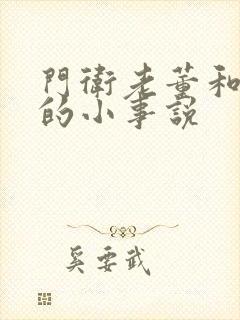 門衛老董和
的小事說
奚要武